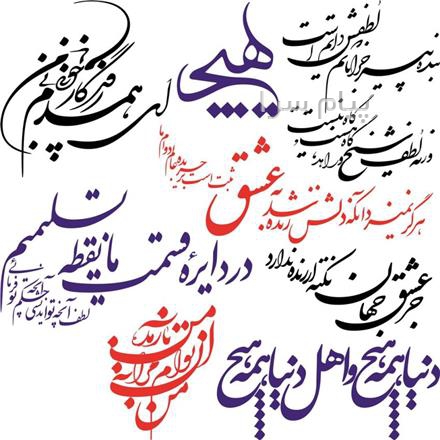 بنده پیر خراباتم که لطفش دایم است
ورنه لطف شیخ و زاهد گاه هست و گاه نیست
هیچ
ای همدم روزگار چونی بی من
پیام سرا
هرگز نمیرد آنکه دلش زنده شد به عشق
ثبت است بر جریده عالم دوام ما
در دایره قسمت ما نقطه تسلیمیم
لطف آنچه تو اندیشی حکم آنچه تو فرمایی
جز عشق جهان نکته ارزنده ندارد
من از توام مرا به من باز مده
دنیا همه هیچ و اهل دنیا همه هیچ